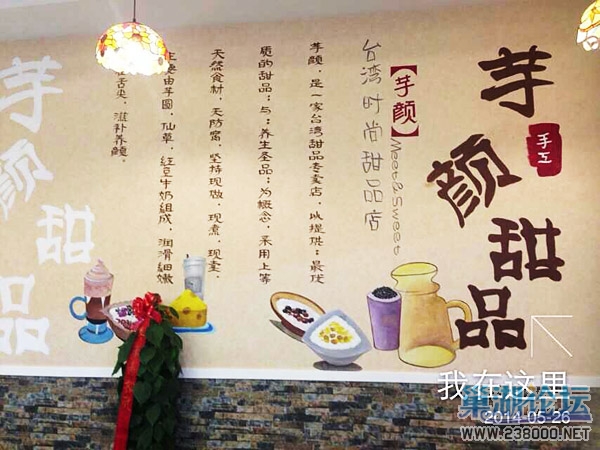 芋颜甜品
手工
【芋颜】Meet&Sweet
台湾时尚甜品店
芋颜，是一家台湾甜品专卖店，以提供：最优
质的甜品；与：养生圣品；为概念，采用上等
天然食材，无防腐，坚持现做，现煮，现卖，
主要由芋圆，仙草，红豆牛奶组成，润滑細嫩
舌尖，滋补养颜。
芋颜甜品
我在这里
巢湖论坛
2014-05-26
WWW.238000.NET